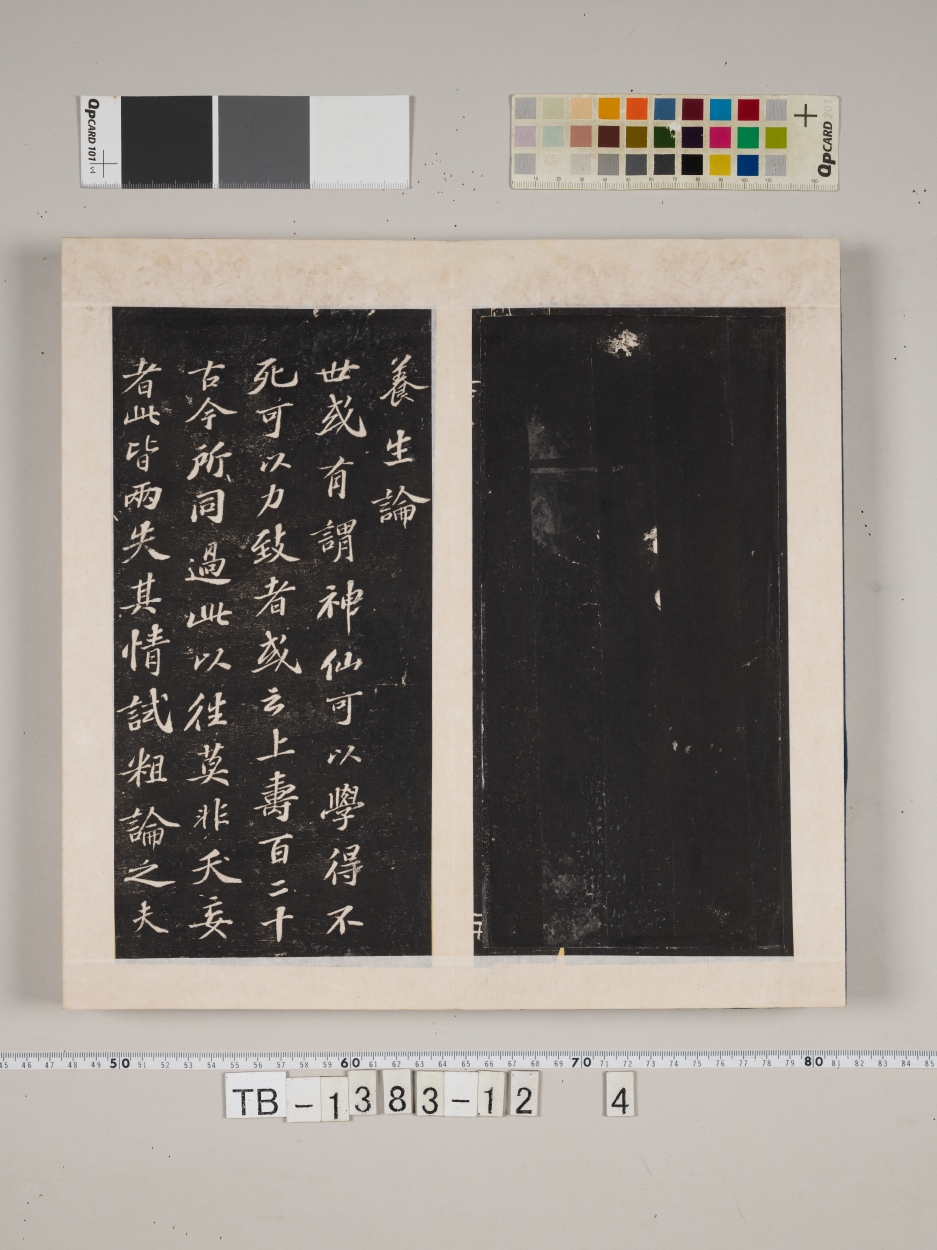 QPCARD 101
QPCARD 201
養生論
世或有謂神仙可以學得不
死可以力致者或云上壽百二十
古今所同過此以往莫非夭妄
者此皆兩失其情試粗論之夫
45 46 47 48 49 50 51 52 53 54 55 56 57 58 59 60 61 62 63 64 65 66 67 68 69 70 71 72 73 74 75 76 77 78 79 80 81 82 83 84 85
TB-1383-12 4